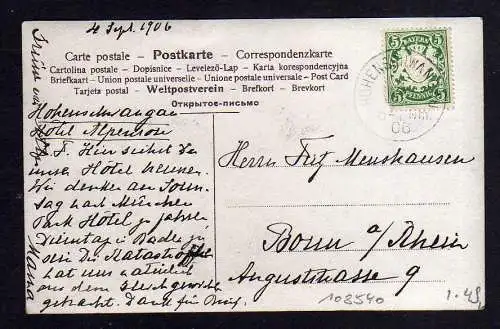 4 Sept. 1906
Carte postale – Postkarte – Correspondenzkarte
Cartolina postale - Dopisnice - Levelező-Lap - Karta korespondencyjna
Briefkaart - Union postale universelle - Unione postale universale - Post Card
Tarjeta postal - Weltpostverein - Brefkort - Brevkort
Открытое-письмо
BAYERN
5 5
PFENNIG
HOHENSCHWANGAU
06
Hohenschwangau
Hôtel Alpenrose
Hier siehst Du
unser Hôtel
Wir denken am Sonn-
tag nach München
Park Hôtel zu
Dienstag in
Dr.
hat uns natürlich
aus dem Gleichgewicht
gebracht. Dank für Brief.
Mama
Herrn Fritz Meushausen
Bonn a/Rhein
Auguststrasse 9
108540
1.45